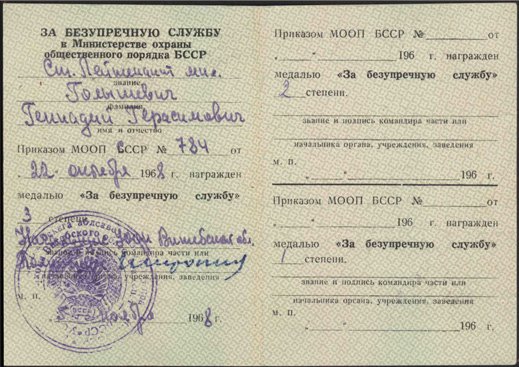 ЗА БЕЗУПРЕЧНУЮ СЛУЖБУ
в Министерстве охраны
общественного порядка БССР
Ст. Лейтенант мил.
звание
Голышевич
фамилия
Геннадий Герасимович
имя и отчество
Приказом МООП БССР № 784 от
22 октября 1968 г. награжден
медалью «За безупречную службу»
3 степени.
Витебской
звание и подпись командира части или
начальника органа, учреждения, заведения
м. п.
ноября 1968 г.
Приказом МООП БССР № от
" " 196 г. награжден
медалью «За безупречную службу»
2 степени.
звание и подпись командира части или
начальника органа, учреждения, заведения
м. п.
" " 196 г.
Приказом МООП БССР № от
" " 196 г. награжден
медалью «За безупречную службу»
1 степени.
звание и подпись командира части или
начальника органа, учреждения, заведения
м. п.
" " 196 г.